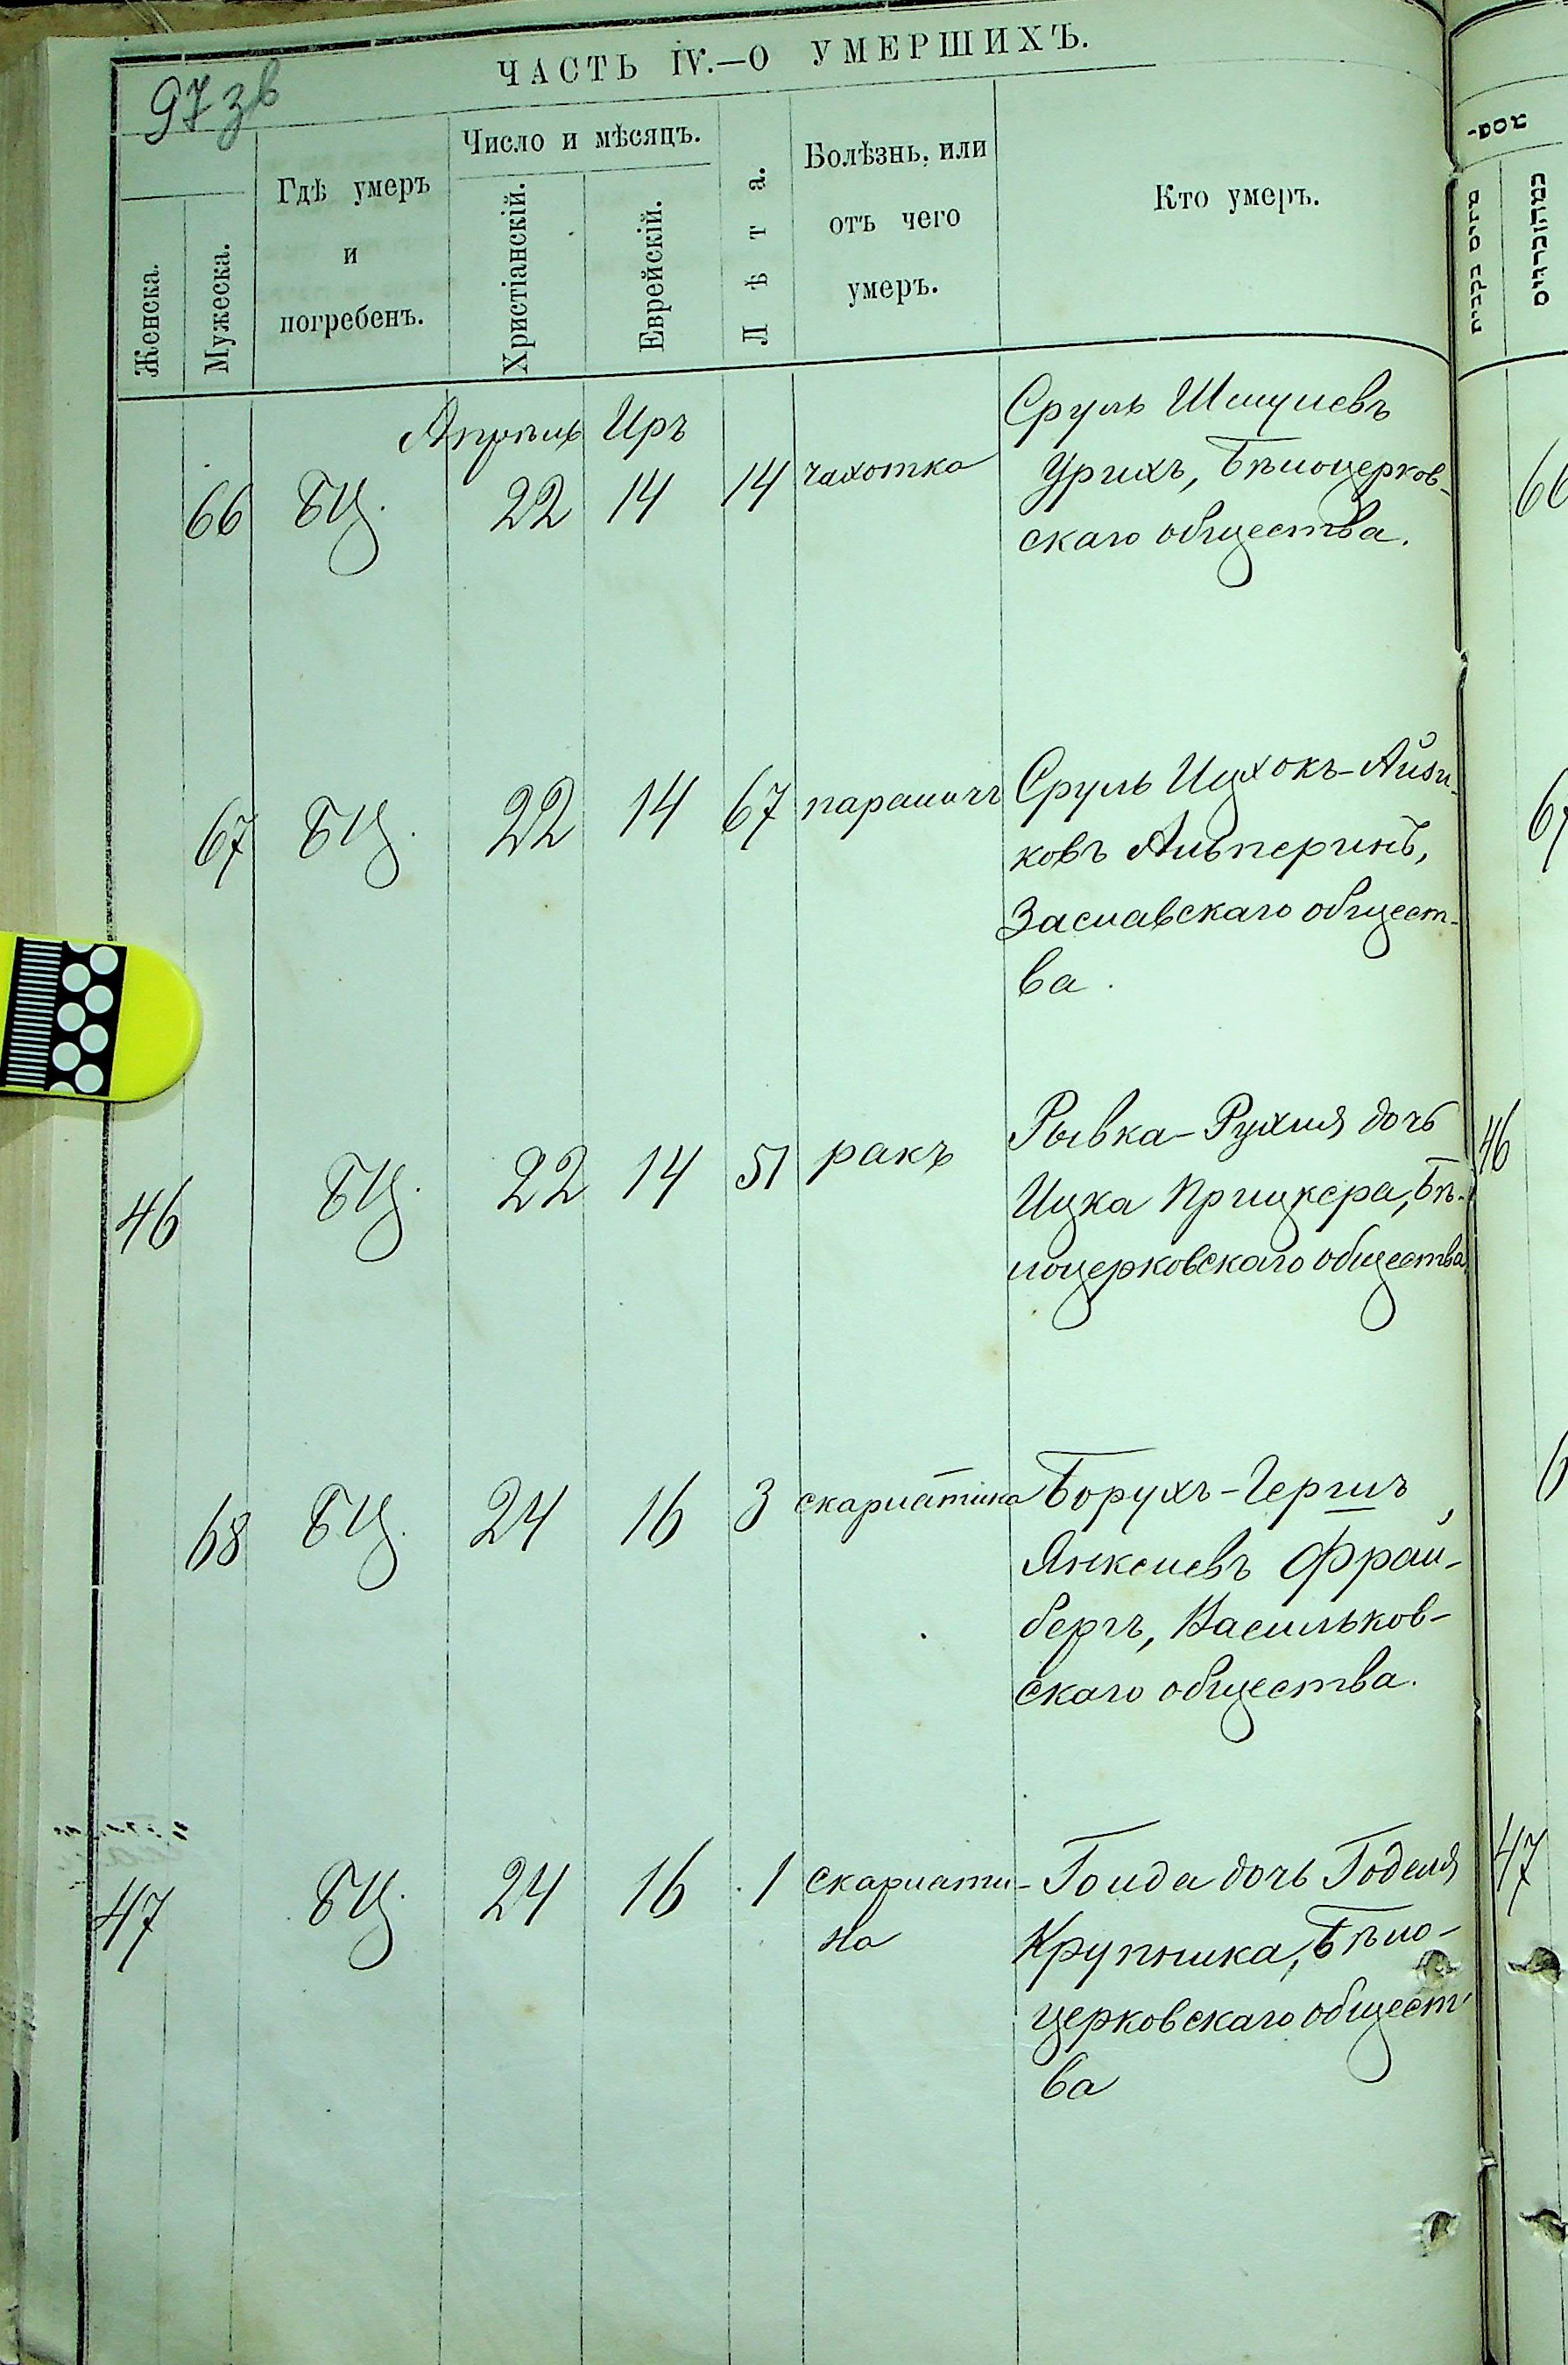 ЧАСТЬ IV.—О УМЕРШИХЪ.
97 зв
Женска.
Мужеска.
Гдѣ умеръ
и
погребенъ.
Число и мѣсяцъ.
Христіанскій.
Еврейскій.
Лѣта.
Болѣзнь, или
отъ чего
умеръ.
Кто умеръ.
Апрѣль Иръ
66 БЦ. 22 14 14 чахотка
Сруль Шмулевъ
Урихъ, Бѣлоцерков-
скаго общества.
67 БЦ. 22 14 67 параличъ
Сруль Ицхокъ-Айзи-
ковъ Альперинъ,
Заславскаго общест-
ва.
46 БЦ. 22 14 51 ракъ
Рывка-Рухля дочь
Ицка Прицкера, Бѣ-
лоцерковскаго общества
68 БЦ. 24 16 3 скарлатина
Борухъ-Гершъ
Янкелевъ Фрай-
бергъ, Васильков-
скаго общества.
47 БЦ. 24 16 1 скарлати-
на
Голда дочь Годеля
Крупника, Бѣло-
церковскаго общест-
ва
66
67
46
47